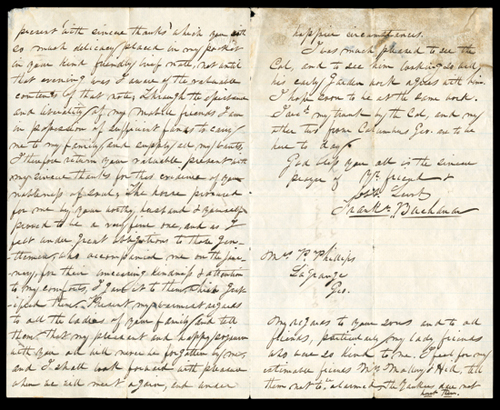 present with sincere thanks which you with
so much delicacy placed in my pocket
in your kind friendly note, not until
that evening was I aware of the valuable
contents of that note, Through the
and liberality of my Mobile friends I am
in possession of sufficient funds to carry
me to my family, and supply all my wants,
I therefore return your valuable present with
my sincere thanks for this evidence of your
nobleness of soul; The horse procured
for me by your worthy husband &
proved to be a very fine one, and as I
feel under great obligations to those Gen-
tlemen, who accompanied me on the jour-
ney, for their unceasing kindness & attention
to my comforts, I gave it to them which
them. Present my warmest regards
to all the ladies of your family, and tell
them, that my pleasant and happy
with you all will never be forgotten by me,
and I shall look forward with pleasure
when we will meet again, but under
happier circumstances.
I was much pleased to see the
Col, and to see him looking so well
his early Garden work agrees with him
I hope soon to be at the same work.
my trunk by the Col, and my
other two from Columbus Geo. are to be
here to day
God bless you all is the sincere
prayer of Yr. friend &
Servt
Frankn. Buchanan
Mrs. P. Phillips
LaGrange
Geo.
My regards to your sons and to all
friends, particularly my lady friends
who were so kind to me. I feel for my
estimable friends Mrs. & Hill, tell
them not to be alarmed the Yankees dare not
hurt them.